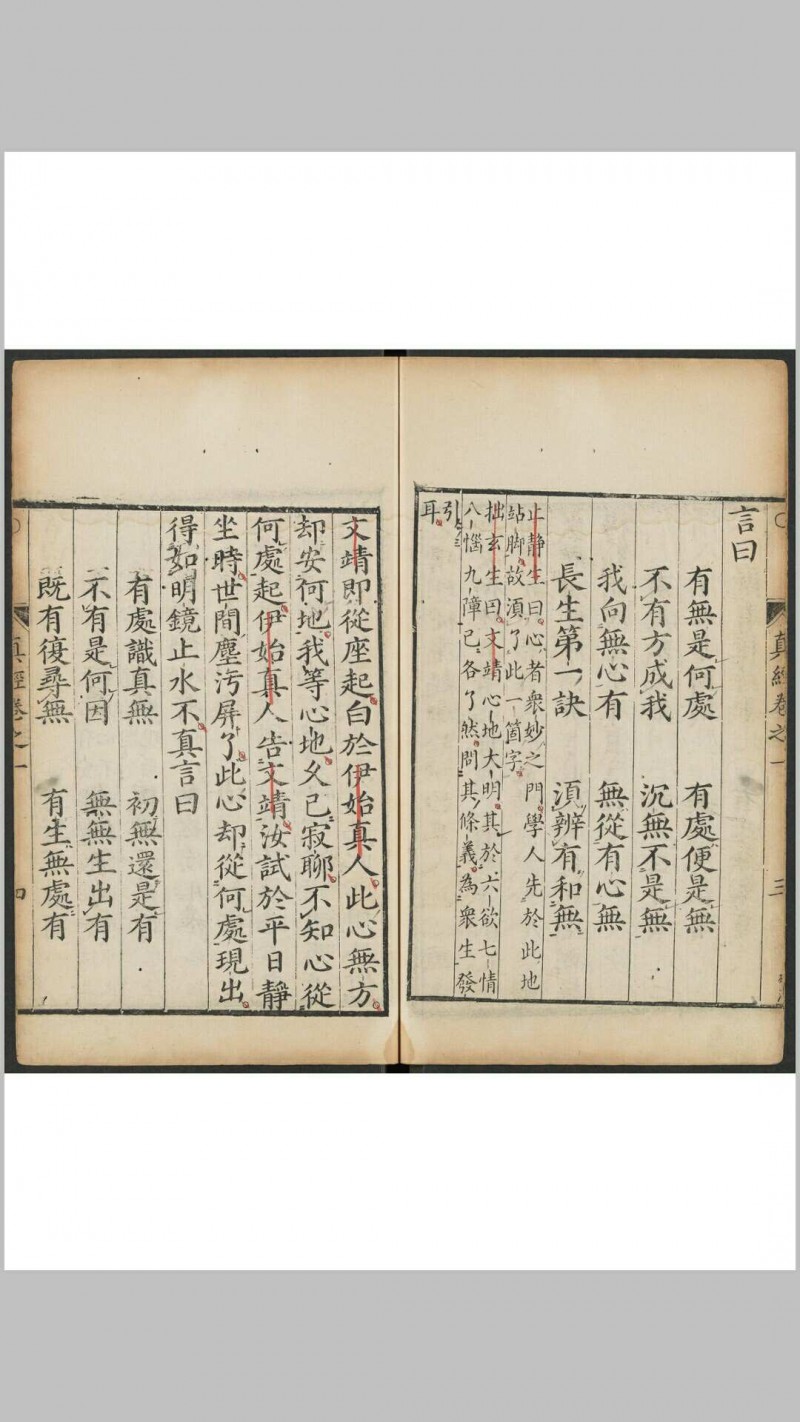 真經卷之一
三
言曰
有無是何處 有處便是無
不有方成我 沉無不是無
我向無心有 無從有心無
長生第一訣 須辨有和無
止靜生曰心者衆妙之門學人先於此地
站脚故須了此一箇字
拙玄生曰文靖心地大明其於六欲七情
八惱九障已各了然問其條義為衆生發
引
耳
文靖即從座起白於伊始真人此心無方
却安何地我等心地久已寂聊不知心從
何處起伊始真人告文靖汝試於平日靜
坐時世間塵汚屏了此心却從何處現出
得如明鏡止水不真言曰
有處識真無 初無還是有
不有是何因 無無生出有
既有復尋無 有生無處有
真經卷之一
四